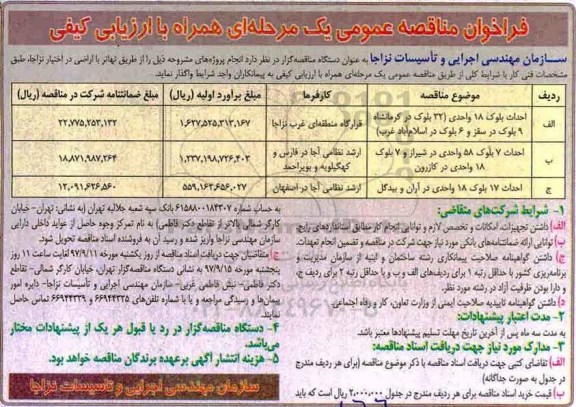 فراخوان مناقصه عمومی یک مرحله‌ای همراه با ارزیابی کیفی
سازمان مهندسی اجرایی و تأسیسات نزاجا به عنوان دستگاه مناقصه‌گزار در نظر دارد انجام پروژه‌های مشروحه ذیل را از طریق تهاتر با اراضی در اختیار نزاجا، طبق
مشخصات فنی کار با شرایط کلی از طریق مناقصه عمومی یک مرحله‌ای همراه با ارزیابی کیفی به پیمانکاران واجد شرایط واگذار نماید.
ردیف موضوع مناقصه کارفرما مبلغ برآورد اولیه (ریال) مبلغ ضمانتنامه شرکت در مناقصه (ریال)
الف احداث بلوک ۱۸ واحدی (۳۲ بلوک در کرمانشاه ۹ بلوک در سقز و ۶ بلوک در اسلام‌آباد غرب) قرارگاه منطقه‌ای غرب نزاجا ۱,۶۲۷,۵۲۵,۳۱۳,۱۶۷ ۲۲,۷۷۵,۲۵۳,۱۳۲
ب احداث ۷ بلوک ۵۸ واحدی در شیراز و ۷ بلوک ۱۸ واحدی در کازرون ارشد نظامی آجا در فارس و کهگیلویه و بویراحمد ۱,۲۳۷,۱۹۸,۷۲۶,۴۰۳ ۱۸,۸۷۱,۹۸۷,۲۶۴
ج احداث ۱۷ بلوک ۱۸ واحدی در آران و بیدگل ارشد نظامی آجا در اصفهان ۵۵۹,۱۶۳,۶۵۶,۰۲۷ ۱۲,۰۹۱,۶۲۶,۵۶۰
۱- شرایط شرکت‌های متقاضی:
الف) داشتن تجهیزات، امکانات و تخصص لازم و توانایی انجام کار مطابق استانداردهای رایج.
ب) توانایی ارائه ضمانتنامه‌های بانکی مورد نیاز جهت شرکت در مناقصه و تضمین انجام تعهدات.
ج) داشتن گواهینامه صلاحیت پیمانکاری رشته ساختمان و ابنیه از سازمان مدیریت و
برنامه‌ریزی کشور با حداقل رتبه ۱ برای ردیف‌های الف و ب و یا حداقل رتبه ۲ برای ردیف ج،
و دارا بودن ظرفیت آزاد در رشته مورد نظر.
د) داشتن گواهینامه تاییدیه صلاحیت ایمنی از وزارت تعاون، کار و رفاه اجتماعی.
۲- مدت اعتبار پیشنهادات:
به مدت سه ماه پس از آخرین تاریخ مهلت تسلیم پیشنهادها معتبر باشد.
۳- مدارک مورد نیاز جهت دریافت اسناد مناقصه:
الف) تقاضای کتبی جهت دریافت اسناد مناقصه با ذکر موضوع مناقصه (برای هر ردیف مندرج
در جدول به صورت جداگانه)
ب) قیمت خرید اسناد مناقصه برای هر ردیف مندرج در جدول ۲,۰۰۰,۰۰۰ ریال است که باید
به حساب شماره ۶۱۵۸۸۰۰۱۸۴۳۰۷ بانک سپه شعبه جلالیه تهران (به نشانی: تهران- خیابان
کارگر شمالی بالاتر از تقاطع دکتر فاطمی) به نام تمرکز وجوه حاصل از عواید داخلی دارایی
سازمان مهندسی نزاجا واریز شده و رسید آن به فروشنده اسناد مناقصه تحویل شود.
ج) متقاضیان جهت دریافت اسناد مناقصه از روز یکشنبه مورخه ۹۷/۹/۱۱ لغایت ساعت ۱۱ روز
پنجشنبه مورخه ۹۷/۹/۱۵ به نشانی دستگاه مناقصه‌گزار تهران، خیابان کارگر شمالی- تقاطع
دکتر فاطمی- نبش فاطمی غربی- سازمان مهندسی اجرایی و تأسیسات نزاجا- دایره امور
پیمان‌ها و رسیدگی مراجعه و یا با شماره تلفن‌های ۶۶۹۴۴۳۳۵ و ۶۶۹۴۴۳۳۹ تماس حاصل
نمایند.
۴- دستگاه مناقصه‌گزار در رد یا قبول هر یک از پیشنهادات مختار
می‌باشد.
۵- هزینه انتشار آگهی برعهده برندگان مناقصه خواهد بود.
سازمان مهندسی اجرایی و تاسیسات نزاجا